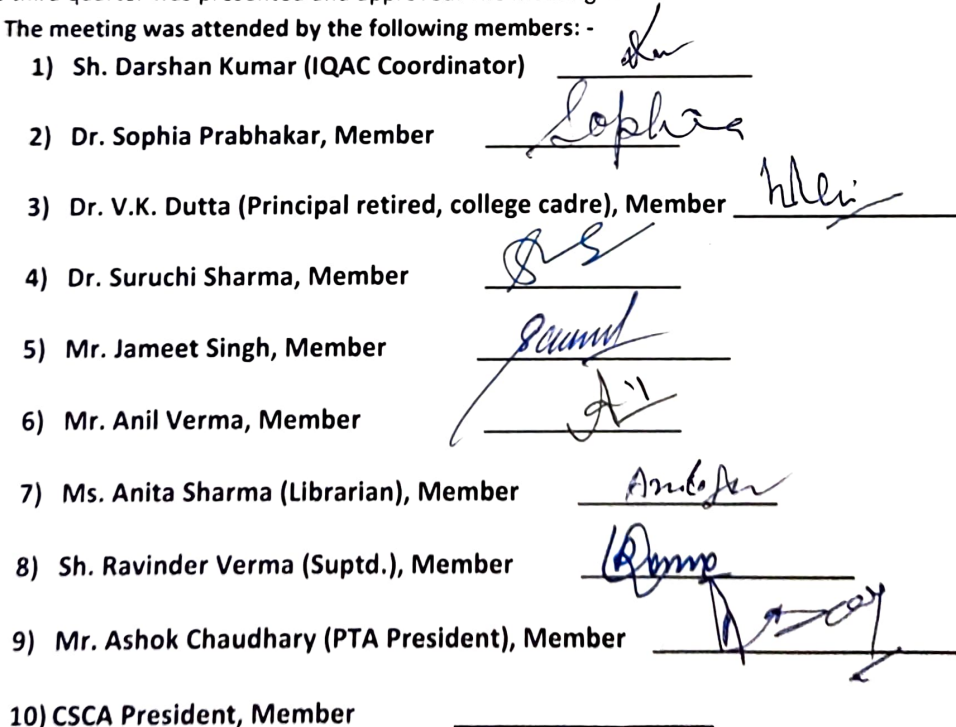 The meeting was attended by the following members: -
1) Sh. Darshan Kumar (IQAC Coordinator)
2) Dr. Sophia Prabhakar, Member Sophia
3) Dr. V.K. Dutta (Principal retired, college cadre), Member
4) Dr. Suruchi Sharma, Member
5) Mr. Jameet Singh, Member
6) Mr. Anil Verma, Member
7) Ms. Anita Sharma (Librarian), Member
8) Sh. Ravinder Verma (Suptd.), Member
9) Mr. Ashok Chaudhary (PTA President), Member
10) CSCA President, Member